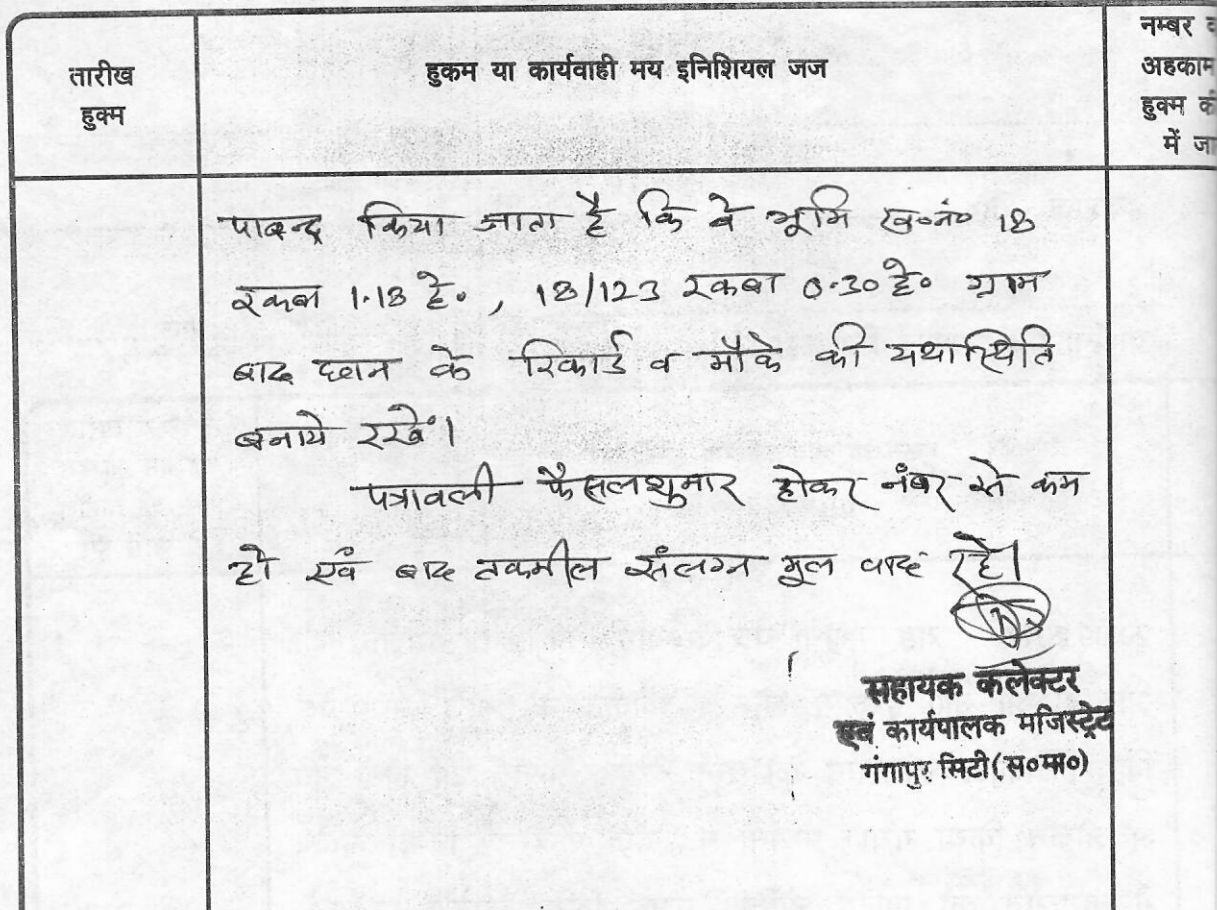 तारीख
हुक्म
हुकम या कार्यवाही मय इनिशियल जज
नम्बर व
अहकाम
हुक्म की
में जा
पाबन्द किया जाता है कि वे भूमि ख०नं० 18
रकबा 1.18 है० , 18/123 रकबा 0.30 है० ग्राम
बाढ छान के रिकार्ड व मौके की यथास्थिति
बनाये रखें।
पत्रावली फैसलशुमार होकर नंबर से कम
हो एवं बाद तकमील संलग्न मूल वाद रहे।
सहायक कलेक्टर
एवं कार्यपालक मजिस्ट्रेट
गंगापुर सिटी(स०मा०)